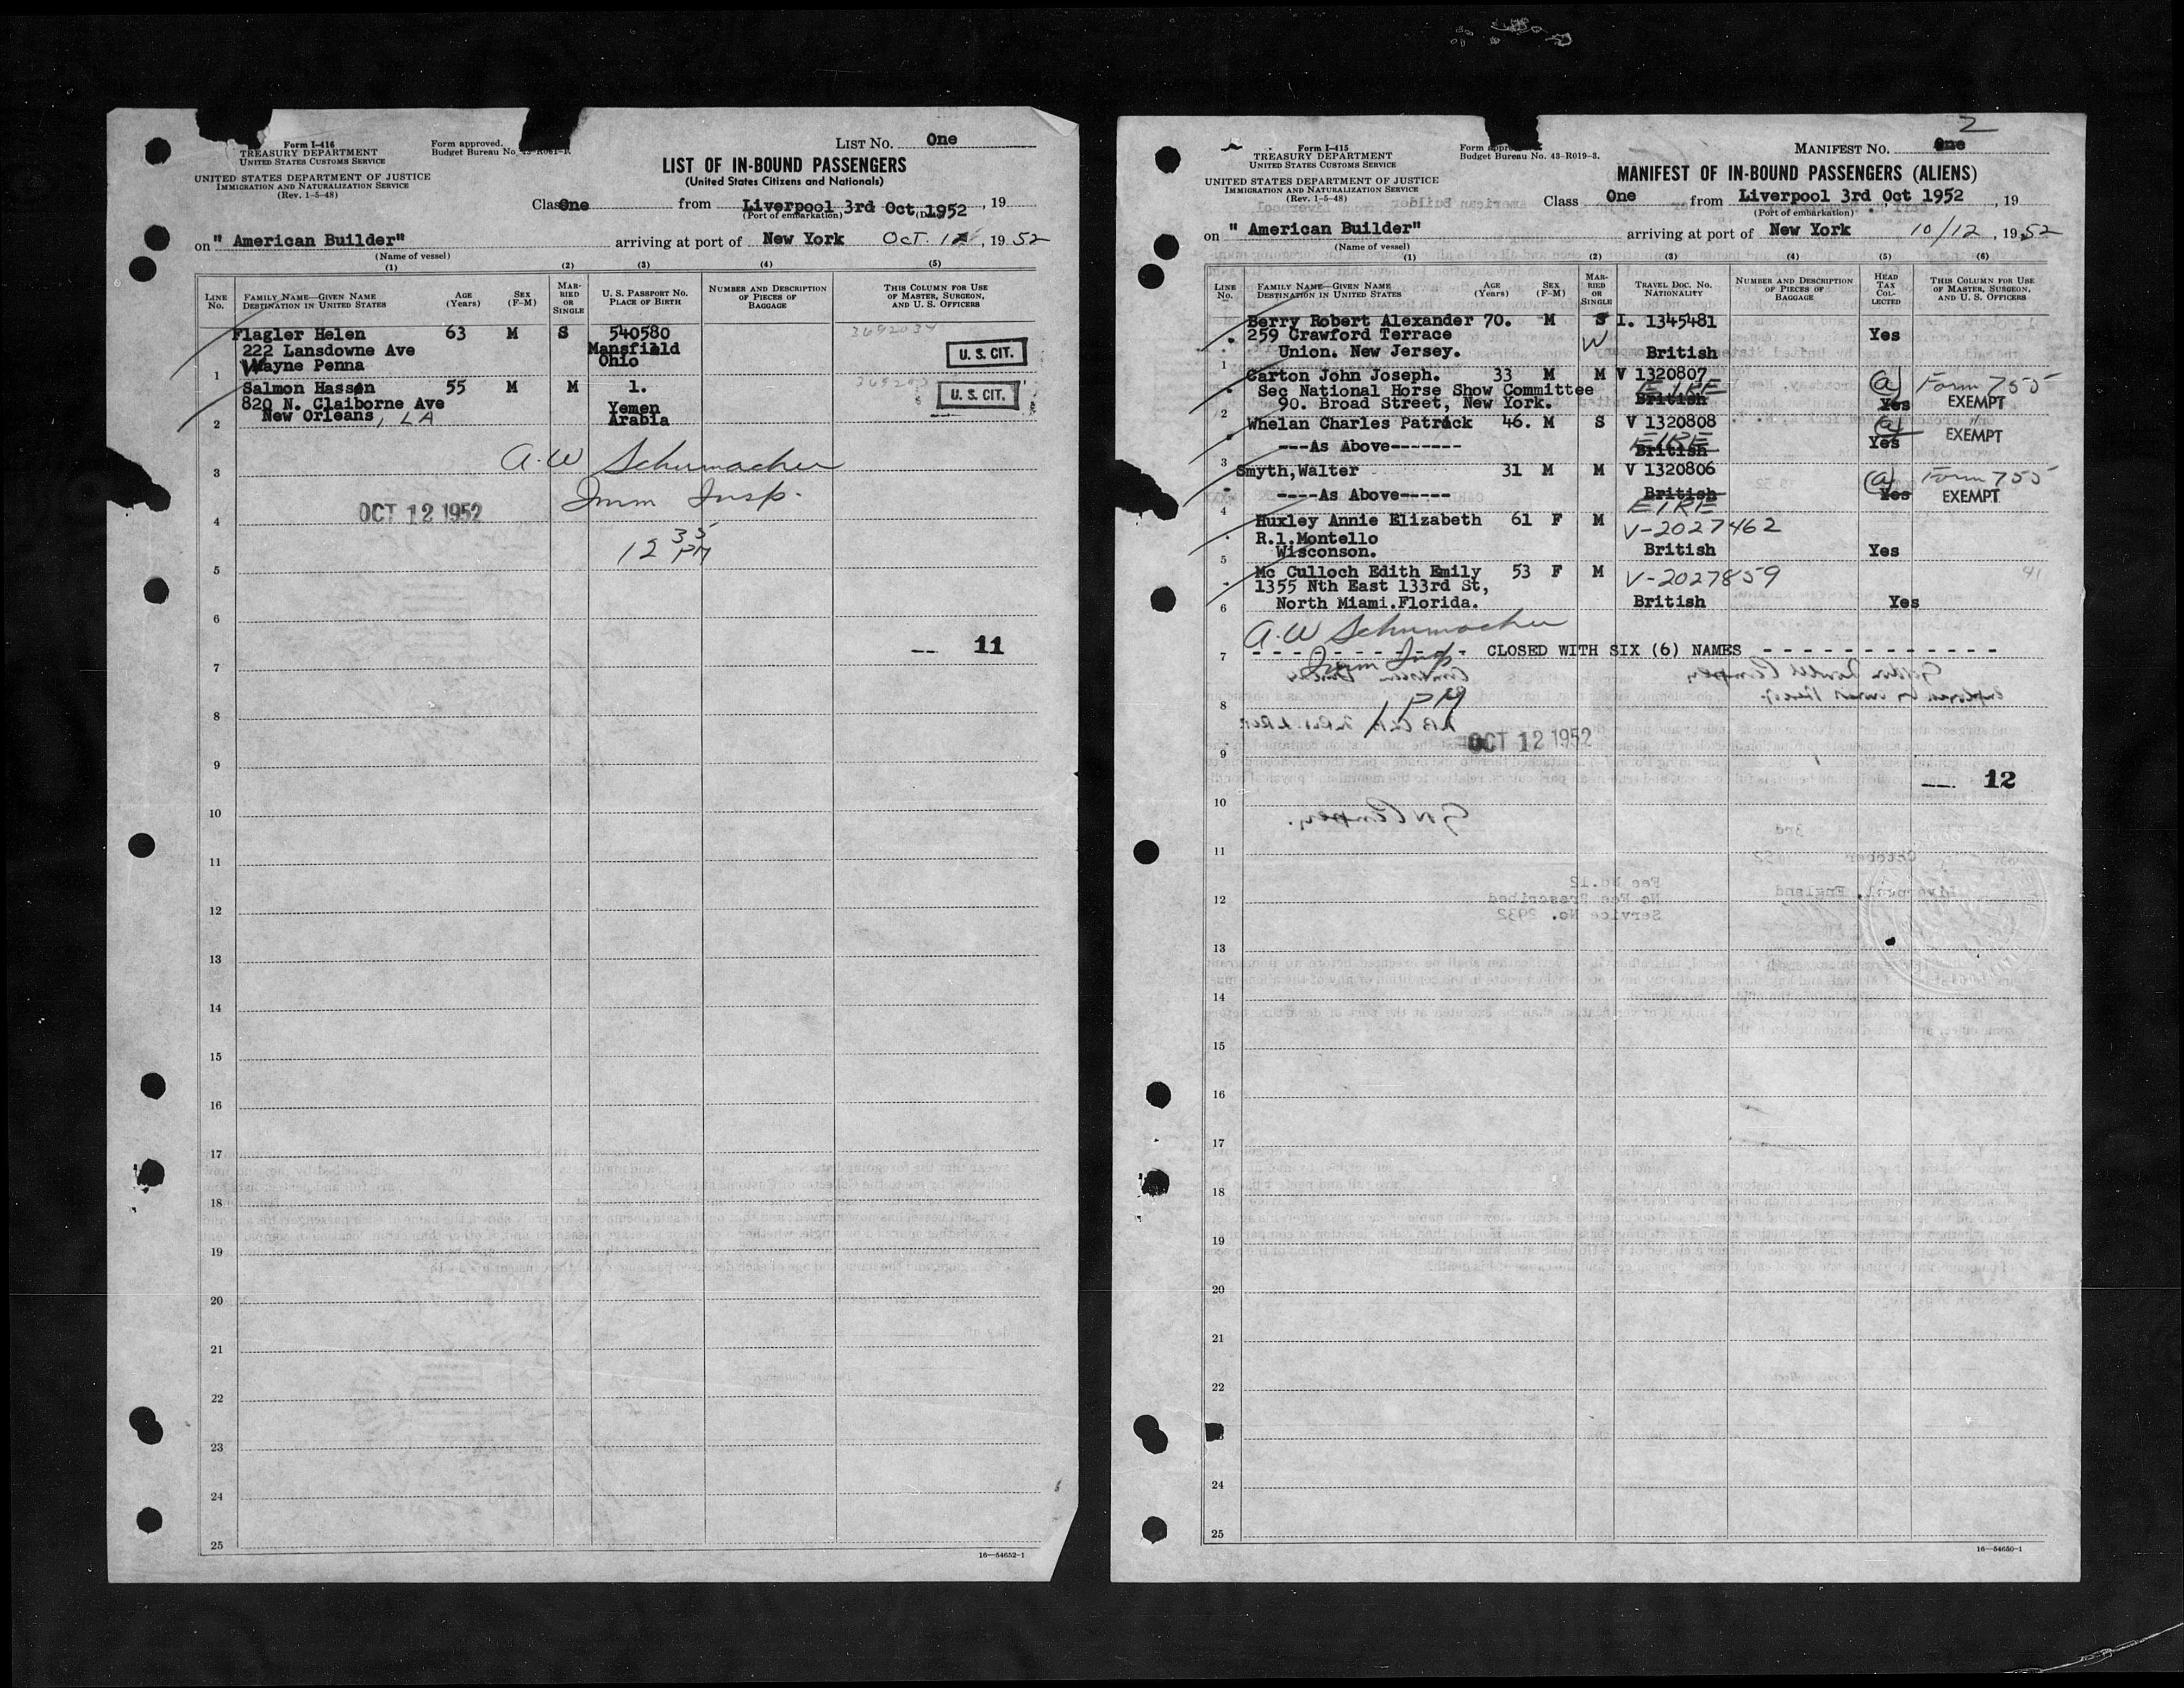 Form I-416
TREASURY DEPARTMENT
UNITED STATES CUSTOMS SERVICE
UNITED STATES DEPARTMENT OF JUSTICE
IMMIGRATION AND NATURALIZATION SERVICE
(Rev. 1-5-48)
Form approved.
Budget Bureau No.
LIST No. One
LIST OF IN-BOUND PASSENGERS
(United States Citizens and Nationals)
Class One from Liverpool 3rd Oct 1952, 19
(Port of embarkation)
on "American Builder" arriving at port of New York Oct. 12, 1952
(Name of vessel)
(1) (2) (3) (4) (5)
LINE No. FAMILY NAME—GIVEN NAME DESTINATION IN UNITED STATES AGE (Years) SEX (F-M) MARRIED OR SINGLE U. S. PASSPORT NO. PLACE OF BIRTH NUMBER AND DESCRIPTION OF PIECES OF BAGGAGE THIS COLUMN FOR USE OF MASTER, SURGEON, AND U. S. OFFICERS
Flagler Helen 63 M S 540580 3692034
222 Lansdowne Ave Mansfield U. S. CIT.
1 Wayne Penna Ohio
Salmon Hassen 55 M M 1. U. S. CIT.
820 N. Claiborne Ave Yemen
2 New Orleans, LA Arabia
3 A.W Schumacher
Imm Insp.
4 OCT 12 1952
12 35 PM
5
6
-- 11
7
8
9
10
11
12
13
14
15
16
17
18
19
20
21
22
23
24
25
16—54652-1
2
Form I-415
TREASURY DEPARTMENT
UNITED STATES CUSTOMS SERVICE
UNITED STATES DEPARTMENT OF JUSTICE
IMMIGRATION AND NATURALIZATION SERVICE
(Rev. 1-5-48)
Form approved.
Budget Bureau No. 43-R019-3.
MANIFEST No. One
MANIFEST OF IN-BOUND PASSENGERS (ALIENS)
Class One from Liverpool 3rd Oct 1952, 19
(Port of embarkation)
on "American Builder" arriving at port of New York 10/12, 1952
(Name of vessel)
(1) (2) (3) (4) (5) (6)
LINE No. FAMILY NAME—GIVEN NAME DESTINATION IN UNITED STATES AGE (Years) SEX (F-M) MARRIED OR SINGLE TRAVEL DOC. NO. NATIONALITY NUMBER AND DESCRIPTION OF PIECES OF BAGGAGE HEAD TAX COLLECTED THIS COLUMN FOR USE OF MASTER, SURGEON, AND U. S. OFFICERS
Berry Robert Alexander 70. M S I. 1345481
259 Crawford Terrace W Yes
1 Union. New Jersey. British
Carton John Joseph. 33 M M V 1320807 (a) Form 755
Sec National Horse Show Committee EIRE
2 90. Broad Street, New York. British Yes EXEMPT
Whelan Charles Patrick 46. M S V 1320808 (a) "
3 ---As Above------- EIRE British Yes EXEMPT
Smyth,Walter 31 M M V 1320806 (a) Form 755
----As Above----- British Yes EXEMPT
4 EIRE
Huxley Annie Elizabeth 61 F M V-2027462
R.1.Montello
5 Wisconson. British Yes
Mc Culloch Edith Emily 53 F M V-2027859 41
1355 Nth East 133rd St,
6 North Miami.Florida. British Yes
A.W Schumacher
7 - - - - - - - - - - - CLOSED WITH SIX (6) NAMES - - - - - - - - - - - -
Imm Insp.
8 1 PM
9 OCT 12 1952
--. 12
10
11
12
13
14
15
16
17
18
19
20
21
22
24
25
16—54650-1